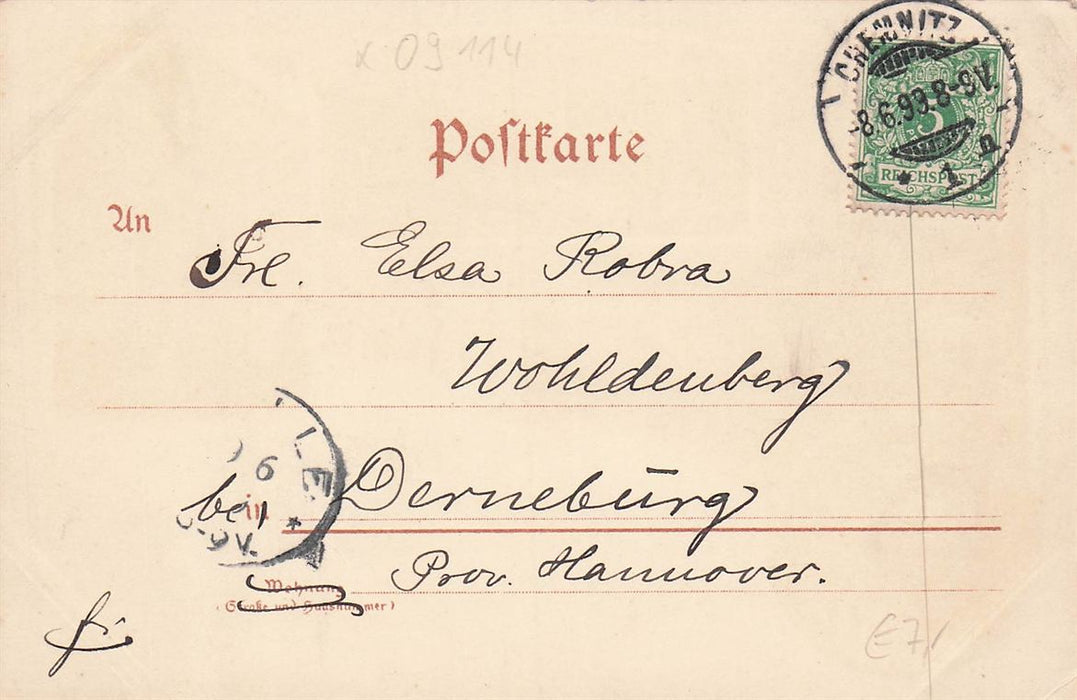 x 09 114
CHEMNITZ
-8.6.99.8-9V.
* 1 n
5
REICHSPOST
Postkarte
An
Frl. Elsa Robra
Wohldenberg
bei in Derneburg
Prov. Hannover.
LE
*
Wohnung
(Straße und Hausnummer)
E7,